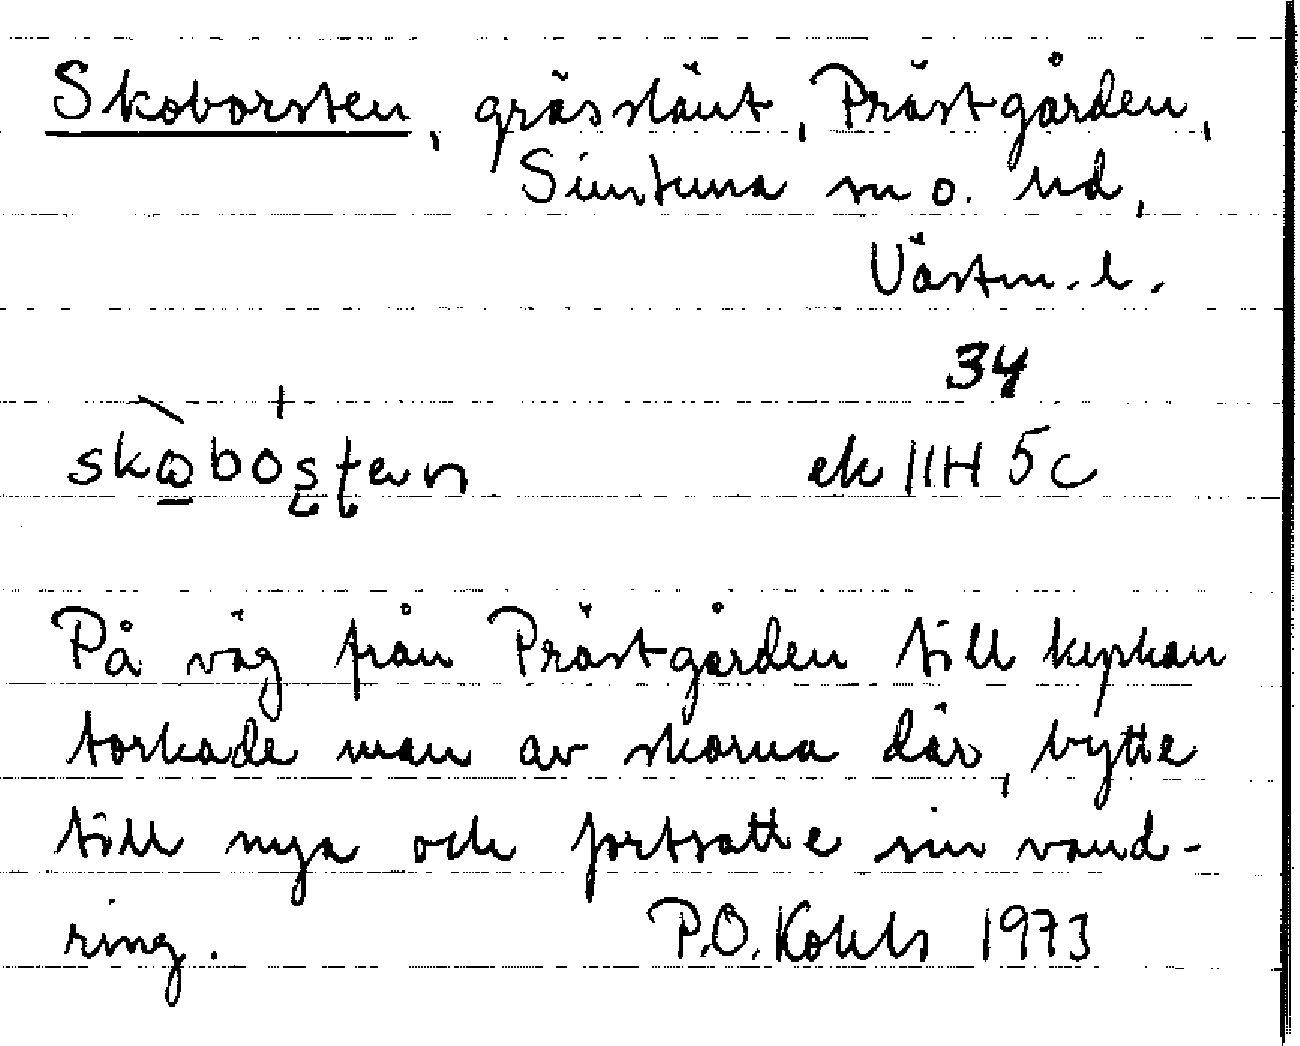 Skoborsten, grässlänt, Prästgården,
Simtuna sn o. hd,
Västm. l.
34
skòbo̩ṣṭen ek 11H 5c
På väg från Prästgården till kyrkan
torkade man av skorna där, bytte
till nya och fortsatte sin vand-
ring. P.O. Kohls 1973